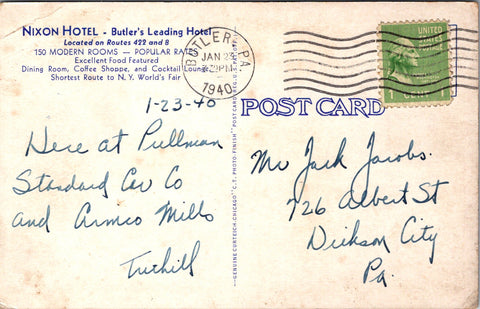 NIXON HOTEL - Butler's Leading Hotel
Located on Routes 422 and 8
150 MODERN ROOMS — POPULAR RATES
Excellent Food Featured
Dining Room, Coffee Shoppe, and Cocktail Lounge
Shortest Route to N. Y. World's Fair
BUTLER, PA.
JAN 23
PM
1940
UNITED
STATES
POSTAGE
POST CARD
GENUINE CURTEICH-CHICAGO "C.T. PHOTO-FINISH" POST CARD
1-23-40
Here at Pullman
Standard Car Co
and Armco Mills
Mr Jack Jacobs.
726 Albert St
Dickson City
Pa.